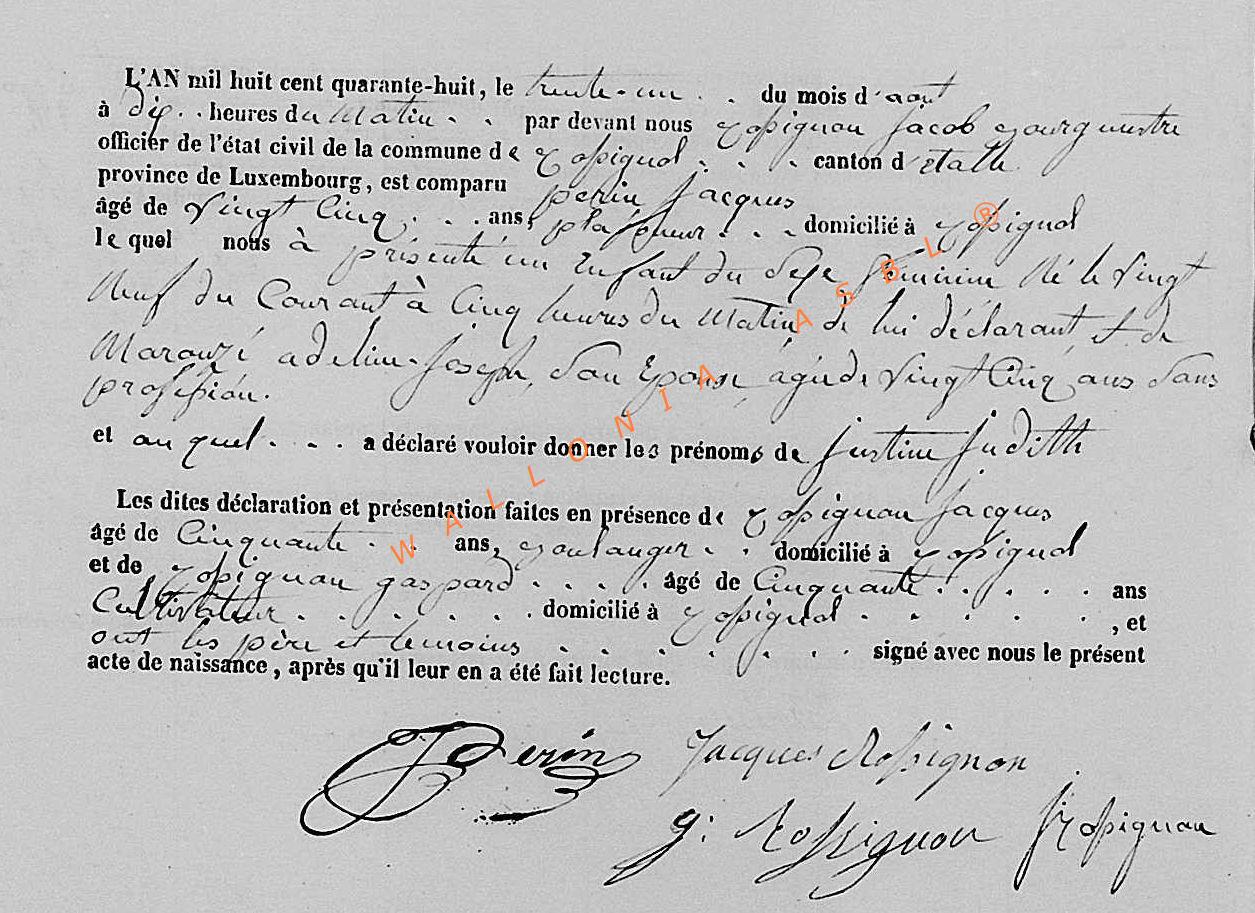 L'AN mil huit cent quarante-huit, le trente-un . . du mois d'aout
à dix . . heures du Matin . . par devant nous Rossignon Jacob Bourguestre
officier de l'état civil de la commune de Rossignol . . . canton d'Etalle
province de Luxembourg, est comparu perin Jacques
âgé de Vingt Cinq . . . ans, plafoneur . . . domicilié à Rossignol
lequel nous à présenté un Enfant du Sexe féminin Né le Vingt
Neuf du Courant à Cinq heures du Matin, de lui déclarant, et de
adeline-Joseph, Son Epouse, agée de Vingt Cinq ans Sans
profession.
et au quel . . . a déclaré vouloir donner les prénoms de Justine Judith
Les dites déclaration et présentation faites en présence de Rossignon Jacques
âgé de Cinquante . . ans, Boulanger . . domicilié à Rossignol
et de Rossignon gaspard . . . . âgé de Cinquante . . . . . ans
Cultivateur . . . . . . domicilié à Rossignol . . . . . , et
ont les père et temoins . . . . . . . signé avec nous le présent
acte de naissance, après qu'il leur en a été fait lecture.
JPerin Jacques Rossignon
g: Rossignon JRossignon
WALLONIA ASBL ®